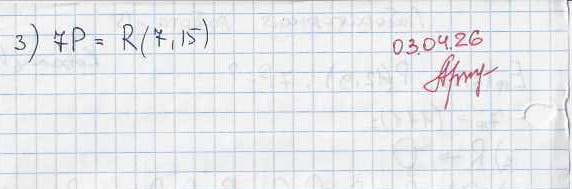 3) 7P = R(7,15)
03.04.26